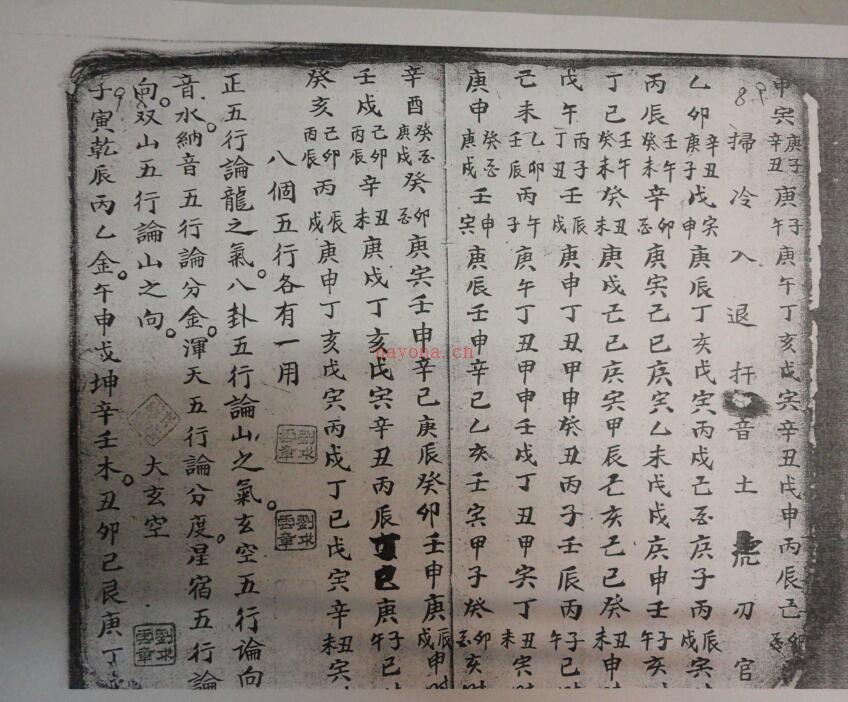 申寅庚子辛丑庚子午庚午丁亥戊寅辛丑戊申丙辰己卯酉
89
掃冷入退扞音土虎刃官
乙卯辛丑庚子戊寅申庚辰丁亥戊寅丙戌己酉庚子丙辰戌寅
丙辰壬午癸未辛卯酉庚寅己巳庚寅乙未戊戌庚申壬子午亥
丁巳壬午癸未癸丑未庚戌己巳庚寅甲辰乙亥己巳癸丑未申
戊午丙子丁丑壬辰戌庚申丁丑甲申癸丑丙子壬辰丙子午巳
己未乙卯壬辰丙午子庚午丁丑甲申壬戌丁丑甲寅丁丑未寅
庚申癸酉庚戌壬申寅庚辰壬申辛巳乙亥壬寅甲子癸卯酉亥
辛酉癸酉庚戌癸卯酉庚寅壬申辛巳庚辰癸卯壬申庚辰戌申
壬戌己卯丙辰辛丑未庚戌丁亥戊寅辛丑丙辰丁巳庚子午巳
癸亥己卯丙辰丙辰戌庚申丁亥戊寅丙戌丁巳戊寅辛丑未寅
八個五行各有一用
正五行論龍之氣。八卦五行論山之氣玄空五行論向
音水。納音五行論分金。渾天五行論分度。星宿五行論
向。双山五行論山之向。
大玄空
9
子寅乾辰丙乙金。午申戌坤辛壬木。丑卯巳艮庚丁
nayona.cn